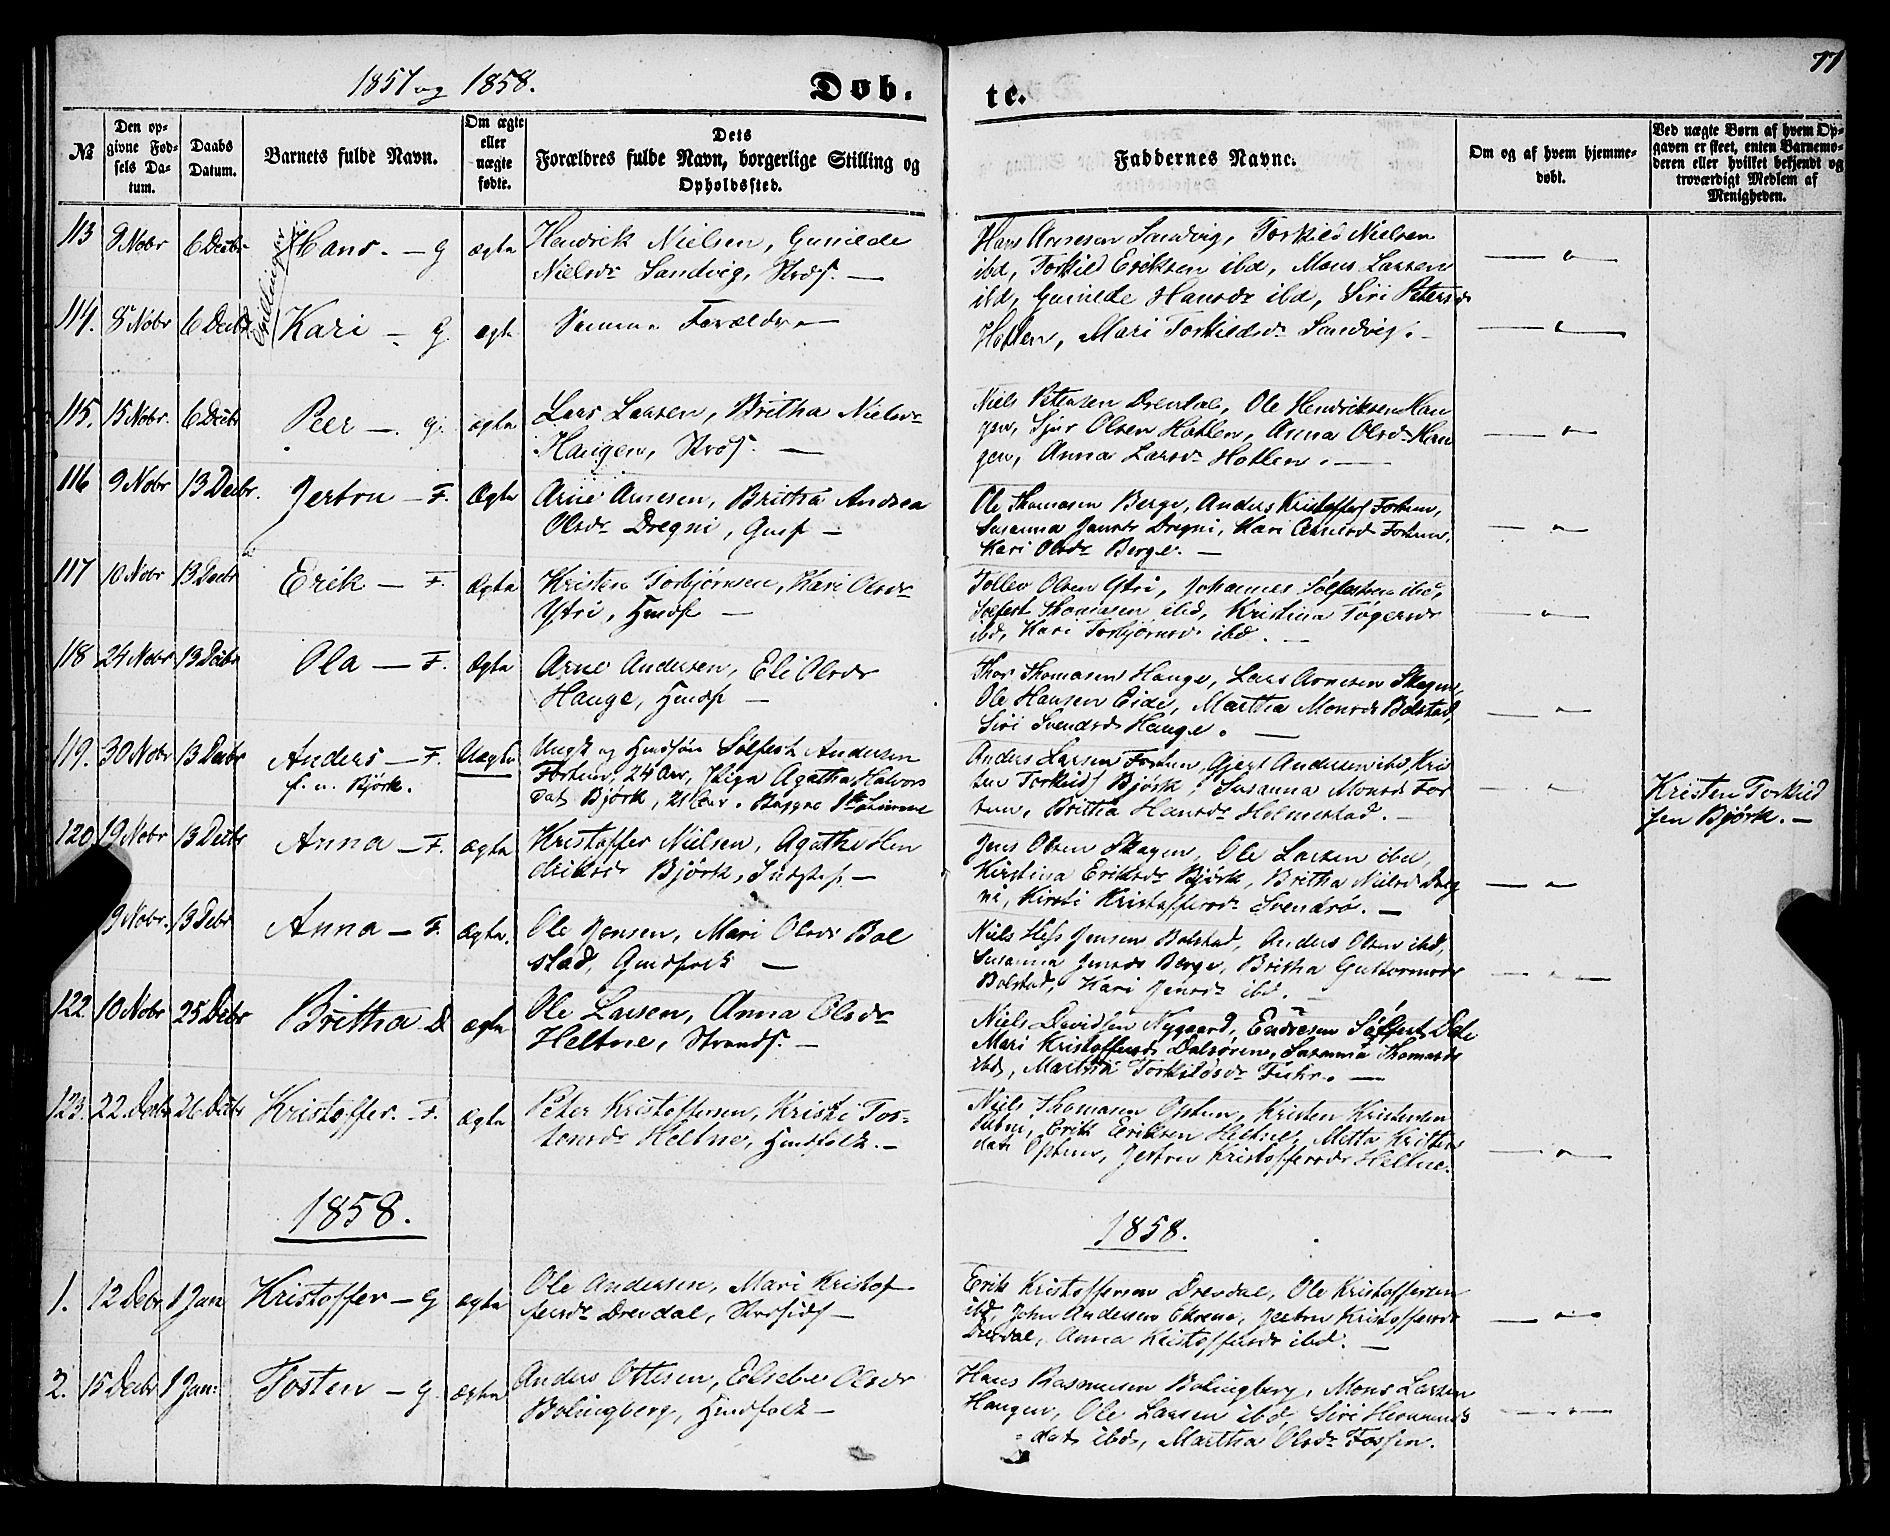 1857 og 1858.
Døb.
te.
77
№
Den op-
givne Fød-
sels Da-
tum.
Daabs
Datum.
Barnets fulde Navn.
Om ægte
eller
uægte
fødte.
Dets
Forældres fulde Navn, borgerlige Stilling og
Opholdssted.
Faddernes Navne.
Om og af hvem hjemme-
døbt.
Ved uægte Børn af hvem Op-
gaven er skeet, enten Barnemo-
deren eller hvilket bekjendt og
troværdigt Medlem af
Menigheden.
113 8 Novbr 6 Decbr Hans. — G ægte Hendrik Nielsen, Gunilde
Nielsdr Sandvig, Strdsf. —
Hans Arnesen Sandvig, Torkild Nielsen
ibd, Torkild Eriksen ibd, Mons Larsen
ibd, Gunilde Hansdr ibd, Siri Petersdr
Tvillinger
114. 8 Novbr 6 Decbr Kari — G. ægte Samme Forældre —
Hatlen, Mari Torkildsdr Sandvig. —
115. 15 Novbr. 6 Decbr Peer —. G. ægte Lars Larsen, Britha Nielsdr
Haugen, Strdsf. —
Niels Petersen Drevdal, Ole Hendriksen Hau
gen, Sjur Olsen Hatlen, Anna Olsdr Hau
gen, Anna Larsdr Hatlen. —
116 9 Novbr 13 Decbr. Jertru — F. Ægte Arne Arnesen, Britha Andrea
Olsdr Dregni, Gmsf —
Ole Thomasen Berge, Anders Kristoffers Fortun,
Susanna Jensdr Dregni, Kari Arnesd Fortun,
Kari Olsdr Berge. —
117 10 Novbr 13 Decbr Erik — F. Ægte Kristen Torbjørnsen, Kari Olsdr
Yttri, Hmdsf —
Tollev Olsen Yttri, Johannes Sølfestsen ibd,
Solfest Thomasen ibd, Kristina Tøgersdr
ibd, Kari Torbjørnsdr ibd. —
118 24 Novbr 13 Decbr Ola — F. Ægte Arne Andersen, Eli Olsdr
Hauge, Hmdsf —
Thor Thomasen Hauge, Lars Arnesen Skagen,
Ole Hansen Eide, Martha Monsdr Bolstad,
Siri Svendsdr Hauge. —
119. 30 Novbr 13 Decbr Anders — F. Uægte Ungk og Hmdsøn Sølfest Andersen
f. n. Bjørk. Fortun, 24 Aar, Pige Agatha Halvors
dat Bjørk, 21 Aar. Begges 1ste
Anders Larsen Fortun, Gjert Andersen ibd, Kri
sten Torkilds Bjørk, Susanna Monsd For
tun, Britha Hansdr Holmestad. —
Kristen Torkild
sen Bjørk. —
120 19 Novbr 13 Decbr Anna — F. ægte Kristoffer Nielsen, Agathe Hen
driksdr Bjørk, —
Jens Olsen Skagen, Ole Larsen ibd,
Kirstina Eriksdr Bjørk, Britha Nielsd Dreg
ni, Kirsti Kristoffersdr Svendsø. —
9 Novbr. 13 Decbr Anna — F. ægte. Ole Jensen, Mari Olsdr Bol
stad, Gmdfolk —
Niels Hess Jensen Bolstad, Anders Olsen ibd,
Susanna Jensdr Berge, Britha Guttormsdr
Bolstad, Kari Jensdr ibd. —
122 10 Novbr 25 Decbr Britha D. ægte Ole Larsen, Anna Olsdr
Heltne, Strandsf. —
Niels Davidsen Nygaard, Endresen Sølfest Dale
Mari Kristoffersdr Dalsøren, Susanna Thomasdr
ibd, Martha Torkildsdr Fuhr. —
123. 22 Decbr 26 Decbr Kristoffer. — F. ægte Peter Kristoffersen, Kristi Tos-
tensdr Heltne, Hmdfolk. —
Niels Thomasen Optun, Kristen Kristensen
, Erik Eriksen Heltne, Metta Kristens
datr Optun, Jertru Kristoffersdr Heltne.
1858.
1858.
1. 12 Decbr 1 Jan Kristoffer — G ægte Ole Andersen, Mari Kristof
fersdr Drevdal, Strdsidsf —
Erik Kristoffersen Drevdal, Ole Kristoffersen
ibd, John Andersen , Jertru Kristoffersdr
Drevdal, Anna Kristoffersdr ibd. —
2. 15 Decbr 1 Jan: Tosten — G. ægte Anders Ottesen, Elsebe Olsdr
Bolingberg, Hmdfolk —
Hans Rasmusen Bolingberg, Mons Larsen
Haugen, Ole Larsen ibd, Siri Hermunds
datr ibd, Martha Olsdr Fossen.